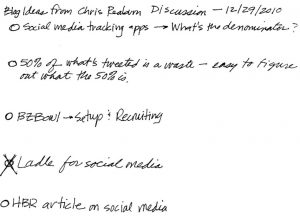 Blog Ideas from Chris Reaburn Discussion - 12/29/2010
○ Social media tracking apps → What's the denominator?
○ 50% of what's tweeted is a waste - easy to figure
out what the 50% is.
○ BZBowl → Setup & Recruiting
Ladle for social media
○ HBR article on social media